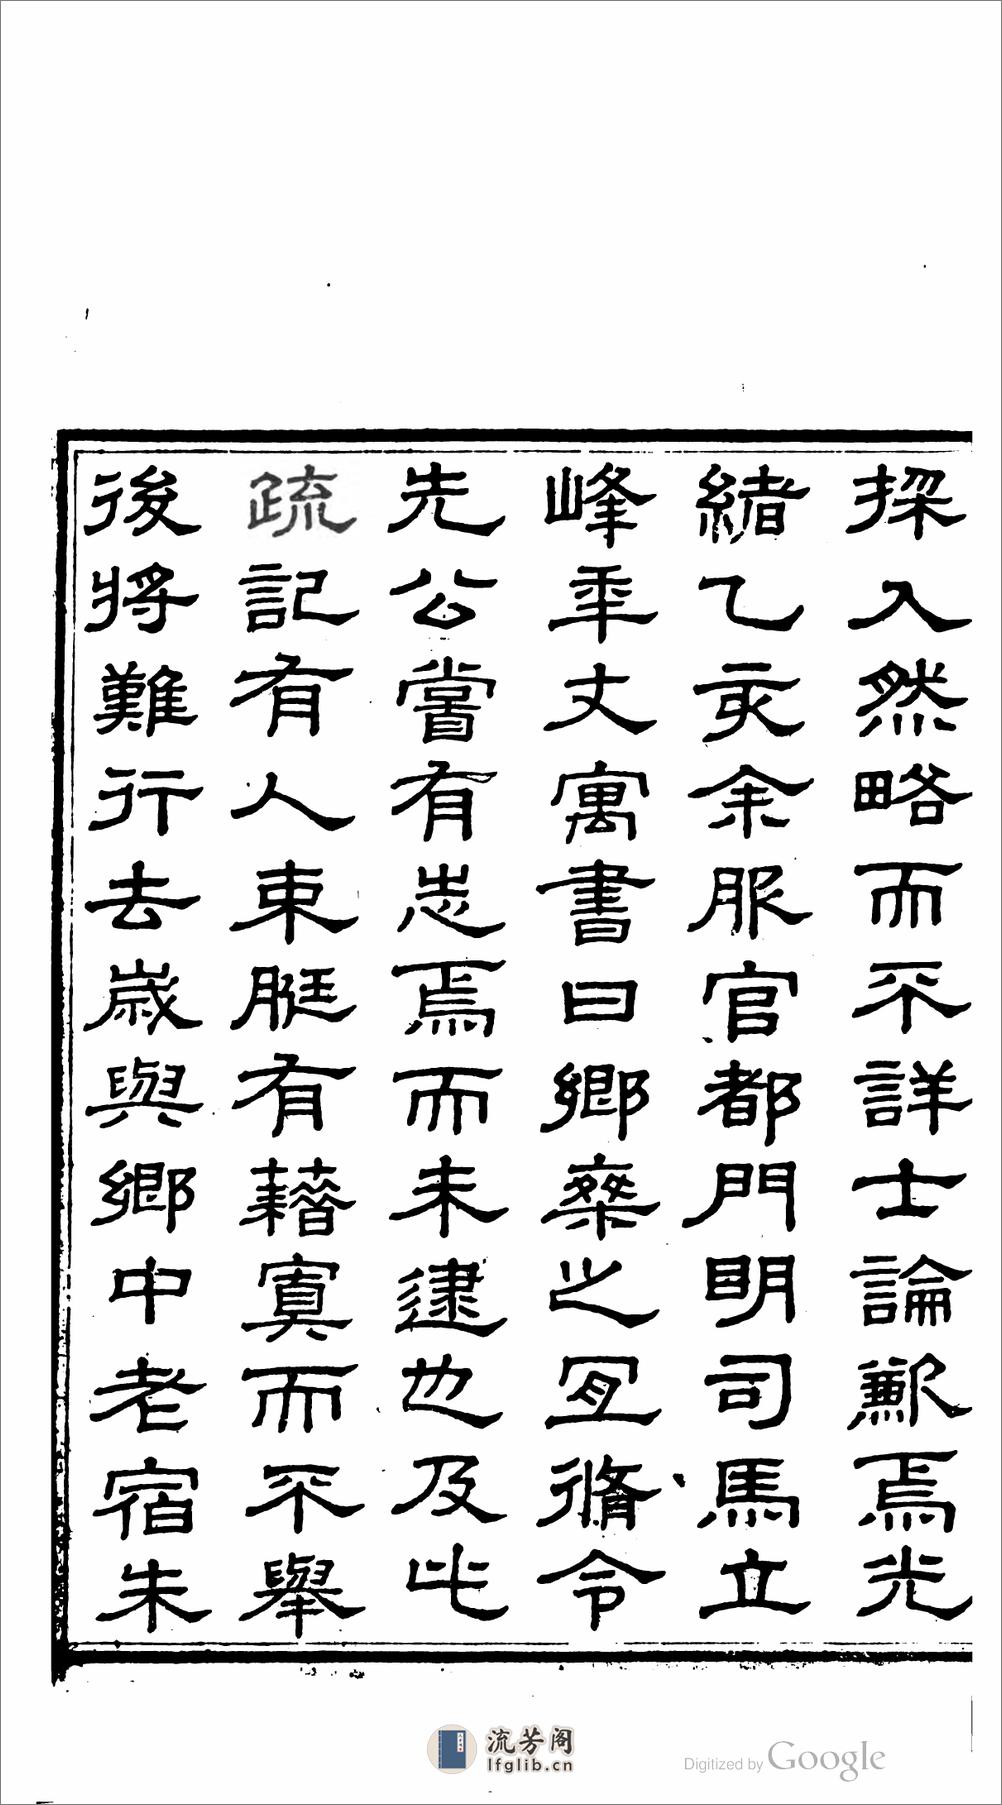 採入然略而不詳士論歉焉光
緒乙亥余服官都門明司馬立
峰年丈寓書曰鄉藥之宜脩令
先公嘗有志焉而未逮也及此
疏記有人束艇有藉寞而不舉
後將難行去歲與鄉中老宿朱
流芳阁
lfglib.cn
Digitized by Google